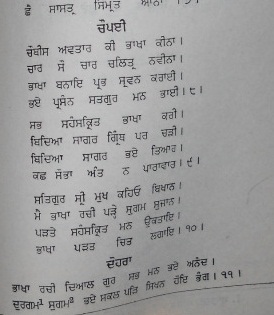 ਛੂੰ ਸਾਸਤ੍ਰ ਸਿਮ੍ਰਤ
ਚੌਪਈ
ਚੌਬੀਸ ਅਵਤਾਰ ਕੀ ਭਾਖਾ ਕੀਨਾ।
ਚਾਰ ਸੌ ਚਾਰ ਚਲਿਤ੍ਰ ਨਵੀਨਾ।
ਭਾਖਾ ਬਨਾਇ ਪ੍ਰਭ ਸ੍ਰਵਨ ਕਰਾਈ।
ਭਏ ਪ੍ਰਸੰਨ ਸਤਗੁਰ ਮਨ ਭਾਈ।੮।
ਸਭ ਸਹੰਸਕ੍ਰਿਤ ਭਾਖਾ ਕਰੀ।
ਬਿਦਿਆ ਸਾਗਰ ਗ੍ਰਿੰਥ ਪਰ ਚੜੀ।
ਬਿਦਿਆ ਸਾਗਰ ਭਏ ਤਿਆਰ।
ਕਛੁ ਸੋਭਾ ਅੰਤ ਨ ਪਾਰਾਵਾਰ।੯।
ਸਤਿਗੁਰ ਸ੍ਰੀ ਮੁਖ ਕਹਿਓ ਬਿਖਾਨ।
ਮੈ ਭਾਖਾ ਰਚੀ ਪੜ੍ਹੋ ਸੁਗਮ ਸੁਜਾਨ।
ਪੜਤੇ ਸਹੰਸਕ੍ਰਿਤ ਮਨ ਉਕਤਾਇ।
ਭਾਖਾ ਪੜਤ ਚਿਤ ਲਗਾਇ।੧੦।
ਦੋਹਰਾ
ਭਾਖਾ ਰਚੀ ਦਿਆਲ ਗੁਰ ਸਭ ਮਨ ਭਏ ਅਨੰਦ।
ਦੁਰਗਮ¹ ਸੁਗਮ² ਭਏ ਸਕਲ ਪੜਿ ਸਿਖਨ ਹੋਇ ਭੰਗ।੧੧।